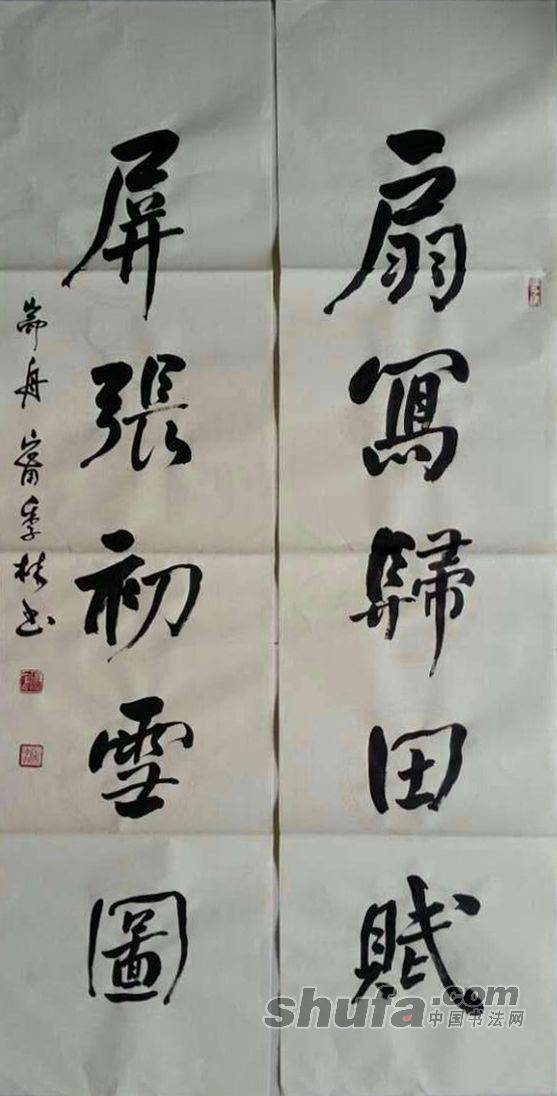 扇寫歸田賦
屏張初雪圖
季
書
shufa.com
中国书法网